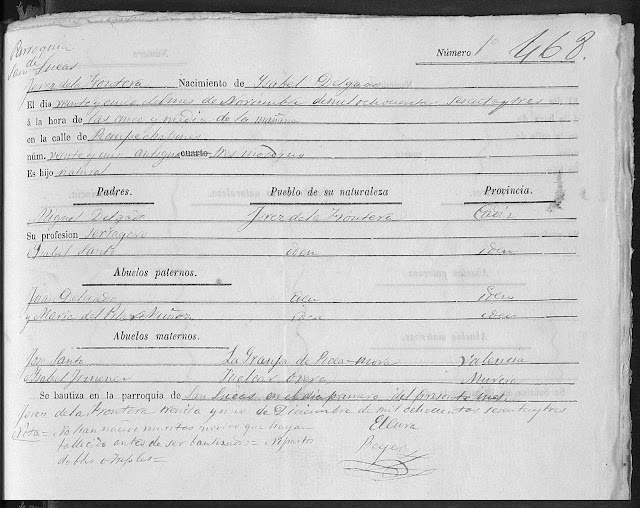 Parroquia
de
San Lucas
Número 1º 468.
Jerez de la Frontera Nacimiento de Isabel Delgado
El dia veinte y cinco del mes de Noviembre de mil ochocientos sesenta y tres
á la hora de las once y media de la mañana
en la calle de
núm. veinte y cinco antiguo cuarto tres moderno
Es hijo natural
Padres. Pueblo de su naturaleza Provincia.
Miguel Delgado Jerez de la Frontera Cadiz
Su profesion
Isabel Santo idem idem
Abuelos paternos.
Juan Delgado idem idem
y Maria del Muñoz idem idem
Abuelos maternos.
Jose Santo La Granja de Valencia
Isabel Jimenez Murcia
Se bautiza en la parroquia de San Lucas en el dia primero del presente mes
Jerez de la Frontera treinta y uno de Diciembre de mil ochocientos sesenta y tres
Nota= No han nacido muertos nuevos que hayan El Cura
fallecido antes de ser bautizados= Ni partos
dobles o triples= Reyes